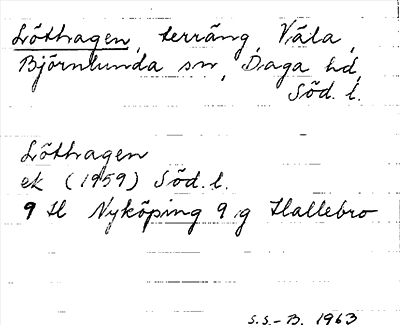 Löthagen, terräng, Våla,
Björnlunda sn, Daga hd,
Söd. l.
Löthagen
ek (1959) Söd. l.
9 H Nyköping 9 g Hallebro
S.S.-B. 1963